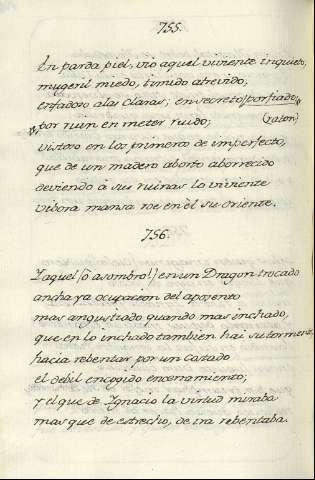 755.
En parda piel, vio aquel viviente inquieto,
mugeril miedo, timido atrevido,
enfadoso a las claras; en secreto/porfiado,
por ruin en meter ruido; (raton)
vistoso en los primeros de imperfecto,
que de un madero aborto aborrecido
deviendo à sus ruinas lo viviente
vibora mansa roe en èl su oriente.
756.
Y aquel (ò asombro!) en un Dragon trocado
ancha ya ocupacion del aposento
mas angustiado quando mas inchado,
que en lo inchado tambien hai su tormento,
hacia rebentar por un costado
el debil encogido encerramiento;
y el que de Ignacio la virtud miraba
mas que de estrecho, de ira rebentaba.